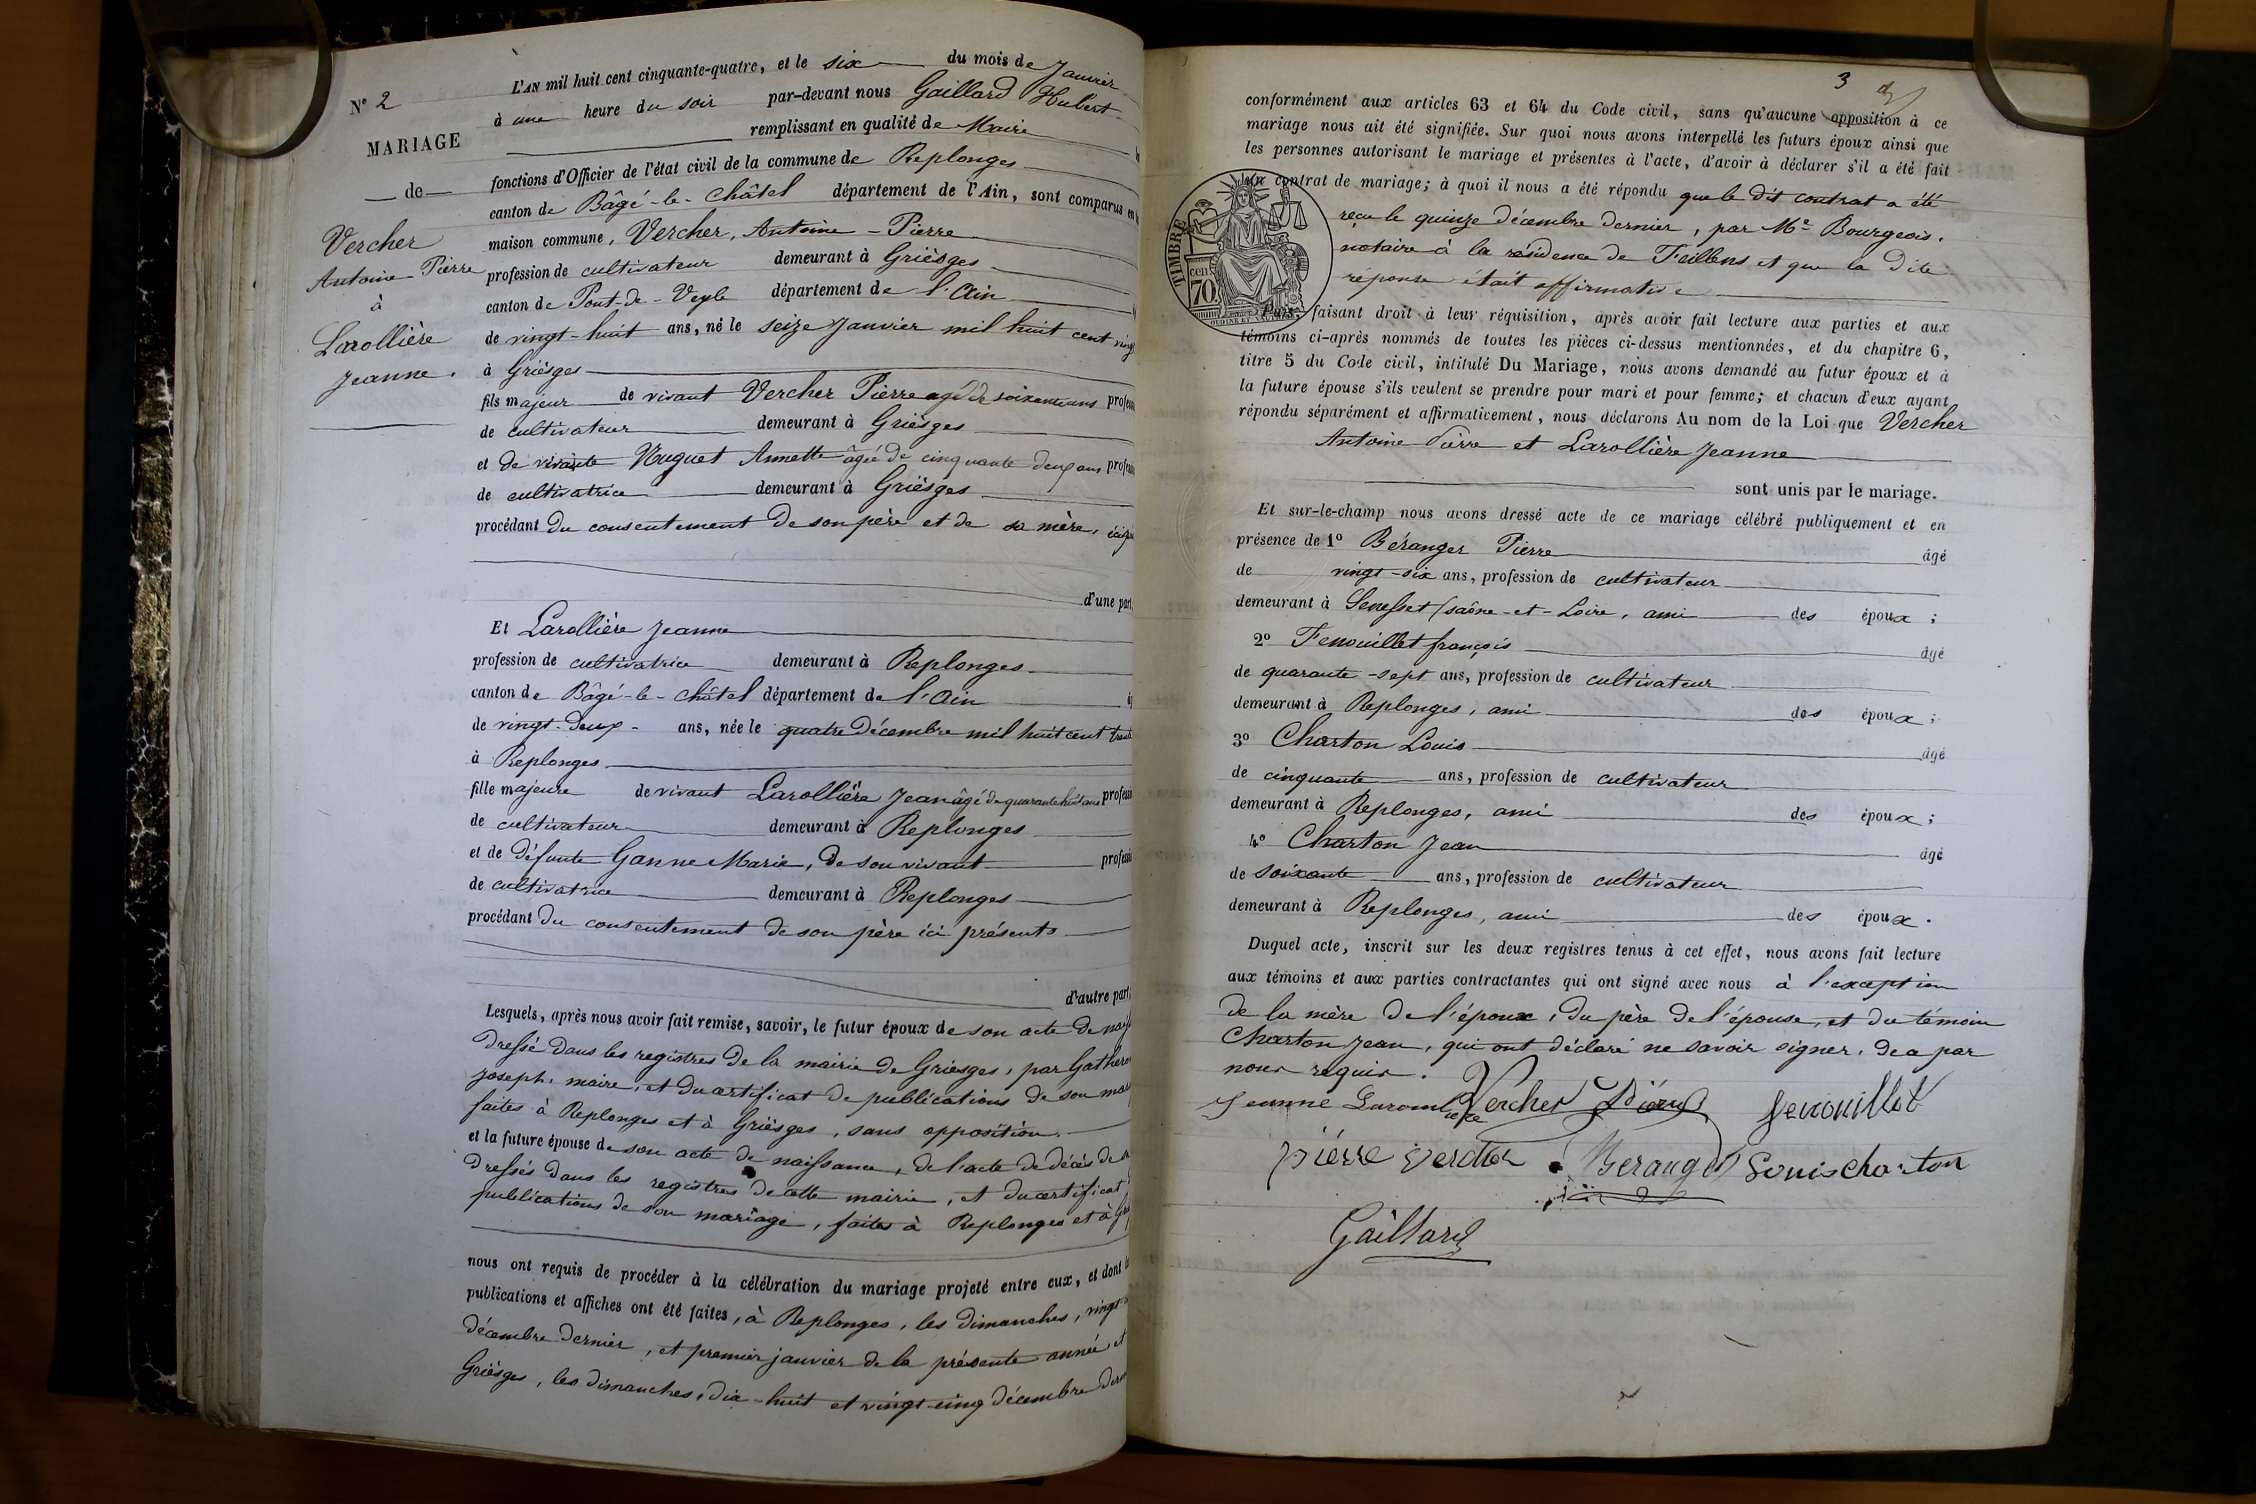 N° 2
MARIAGE
de
Vercher
Antoine Pierre
à
Larollière
Jeanne.
L'AN mil huit cent cinquante-quatre, et le six du mois de Janvier
à une heure du soir par-devant nous Gaillard Hubert
remplissant en qualité de Maire
fonctions d'Officier de l'état civil de la commune de Replonges
canton de Bâgé-le-Châtel département de l'Ain, sont comparus en
maison commune, Vercher, Antoine-Pierre
profession de cultivateur demeurant à Griëges
canton de Pont-de-Veyle département de l'Ain
de vingt-huit ans, né le seize Janvier mil huit cent vingt
à Griëges
fils majeur de vivant Vercher Pierre agé de soixante ans
de cultivateur demeurant à Griëges
et de vivante Nuguet Annette âgée de cinquante deux ans
de cultivatrice demeurant à Griëges
procédant du consentement de son père et de sa mère,
d'une part
Et Larollière Jeanne
profession de cultivatrice demeurant à Replonges
canton de Bâgé-le-Châtel département de l'Ain
de vingt-deux ans, née le quatre Décembre mil huit cent
à Replonges
fille majeure de vivant Larollière Jean âgé de quarante huit ans
de cultivateur demeurant à Replonges
et de défunte Ganne Marie, de son vivant
de cultivatrice demeurant à Replonges
procédant du consentement de son père ici présents
d'autre part
Lesquels, après nous avoir fait remise, savoir, le futur époux de son acte de
dressé dans les registres de la mairie de Griëges, par
Joseph, maire, et du certificat de publications de son
faites à Replonges et à Griëges, sans opposition.
et la future épouse de son acte de naissance, de l'acte de décès de
dressés dans les registres de cette mairie, et du certificat
publications de son mariage, faites à Replonges et à
nous ont requis de procéder à la célébration du mariage projeté entre eux, et dont
publications et affiches ont été faites, à Replonges, les dimanches, vingt-
décembre dernier, et premier janvier de la présente année et
Griëges, les dimanches, dix-huit et vingt-cinq décembre
3
conformément aux articles 63 et 64 du Code civil, sans qu'aucune opposition à ce
mariage nous ait été signifiée. Sur quoi nous avons interpellé les futurs époux ainsi que
les personnes autorisant le mariage et présentes à l'acte, d'avoir à déclarer s'il a été fait
un contrat de mariage; à quoi il nous a été répondu que le dit contrat a été
reçu le quinze décembre dernier, par Me Bourgeois,
notaire à la résidence de Feillens et que la dite
réponse était affirmative
TIMBRE
cen
70
Puis, faisant droit à leur réquisition, après avoir fait lecture aux parties et aux
témoins ci-après nommés de toutes les pièces ci-dessus mentionnées, et du chapitre 6,
titre 5 du Code civil, intitulé Du Mariage, nous avons demandé au futur époux et à
la future épouse s'ils veulent se prendre pour mari et pour femme; et chacun d'eux ayant
répondu séparément et affirmativement, nous déclarons Au nom de la Loi que Vercher
Antoine Pierre et Larollière Jeanne
sont unis par le mariage.
Et sur-le-champ nous avons dressé acte de ce mariage célébré publiquement et en
présence de 1° Béranger Pierre âgé
de vingt-six ans, profession de cultivateur
demeurant à (Saône-et-Loire, ami des époux;
2° Fenouillet françois âgé
de quarante-sept ans, profession de cultivateur
demeurant à Replonges, ami des époux;
3° Charton Louis âgé
de cinquante ans, profession de cultivateur
demeurant à Replonges, ami des époux;
4° Charton Jean âgé
de soixante ans, profession de cultivateur
demeurant à Replonges, ami des époux.
Duquel acte, inscrit sur les deux registres tenus à cet effet, nous avons fait lecture
aux témoins et aux parties contractantes qui ont signé avec nous à l'exception
de la mère de l'époux, du père de l'épouse, et du témoin
Charton Jean, qui ont déclaré ne savoir signer, de a par
nous requis.
Jeanne Vercher Pierre fenouillet
pierre Beranger Louis charton
Gaillard